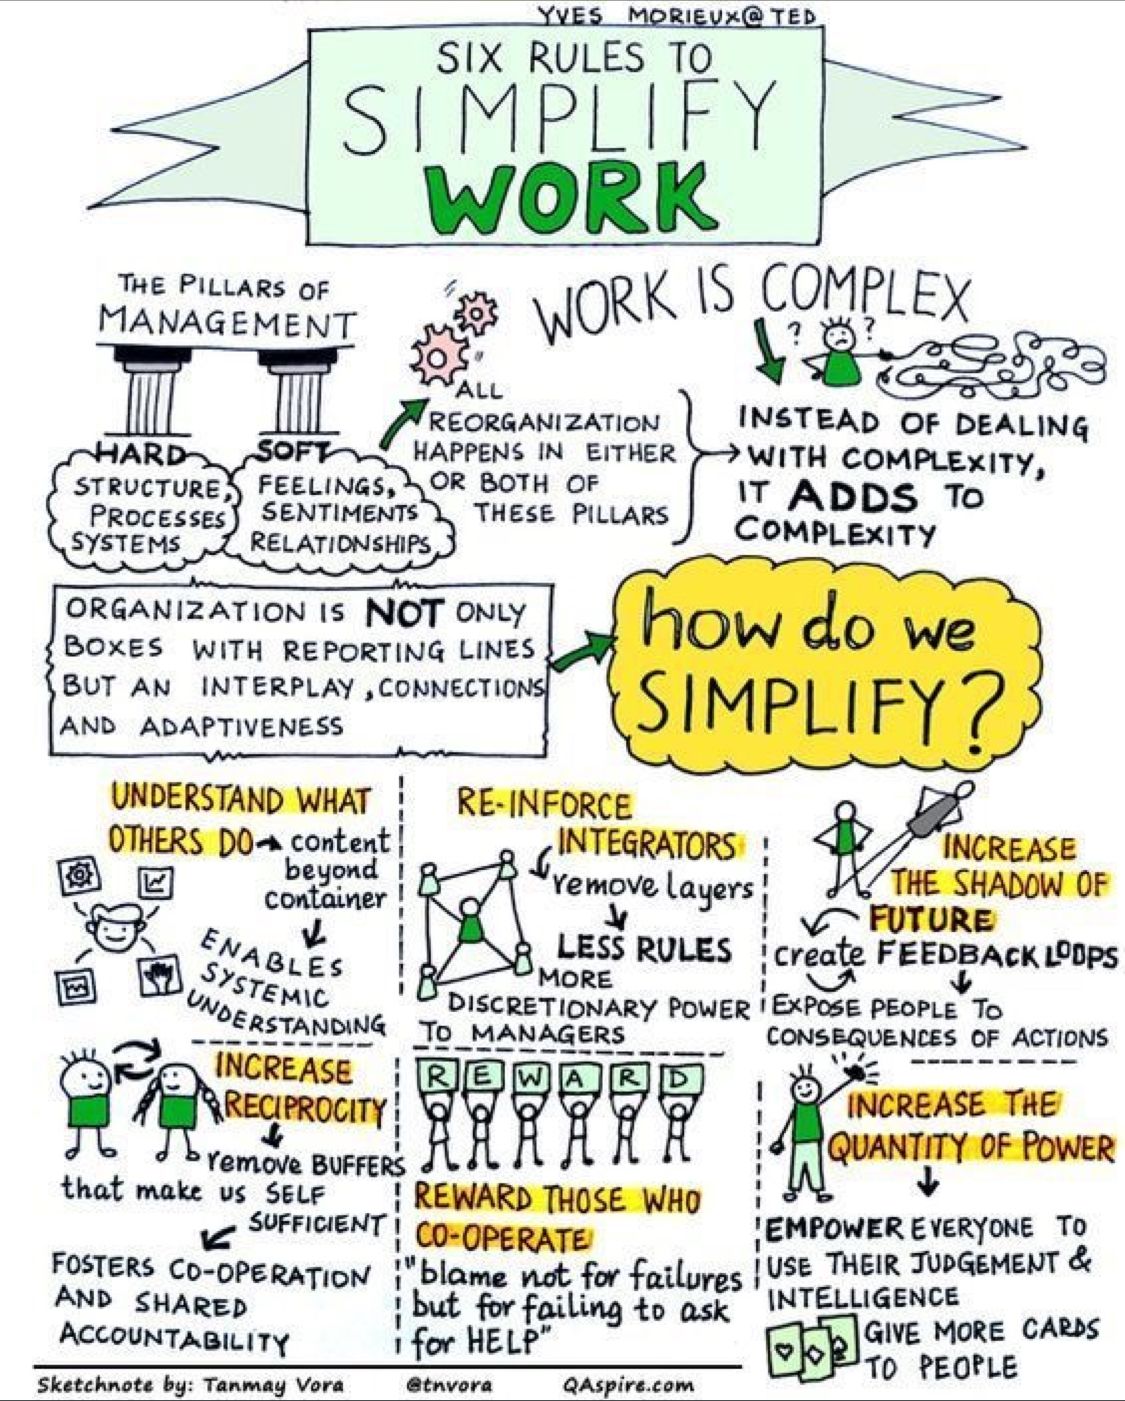 YVES MORIEUX@TED
SIX RULES TO
SIMPLIFY
WORK
THE PILLARS OF
MANAGEMENT
HARD
STRUCTURE,
PROCESSES
SYSTEMS
SOFT
FEELINGS,
SENTIMENTS
RELATIONSHIPS
ALL
REORGANIZATION
HAPPENS IN EITHER
OR BOTH OF
THESE PILLARS
WORK IS COMPLEX
? ?
INSTEAD OF DEALING
WITH COMPLEXITY,
IT ADDS TO
COMPLEXITY
ORGANIZATION IS NOT ONLY
BOXES WITH REPORTING LINES
BUT AN INTERPLAY, CONNECTIONS
AND ADAPTIVENESS
how do we
SIMPLIFY?
UNDERSTAND WHAT
OTHERS DO → content
beyond
container
ENABLES
SYSTEMIC
UNDERSTANDING
RE-INFORCE
INTEGRATORS
remove layers
LESS RULES
MORE
DISCRETIONARY POWER
TO MANAGERS
INCREASE
THE SHADOW OF
FUTURE
create FEEDBACK LOOPS
EXPOSE PEOPLE TO
CONSEQUENCES OF ACTIONS
INCREASE
RECIPROCITY
remove BUFFERS
that make us SELF
SUFFICIENT
FOSTERS CO-OPERATION
AND SHARED
ACCOUNTABILITY
REWARD
REWARD THOSE WHO
CO-OPERATE
"blame not for failures
but for failing to ask
for HELP"
INCREASE THE
QUANTITY OF POWER
EMPOWER EVERYONE TO
USE THEIR JUDGEMENT &
INTELLIGENCE
GIVE MORE CARDS
TO PEOPLE
Sketchnote by: Tanmay Vora @tnvora QAspire.com